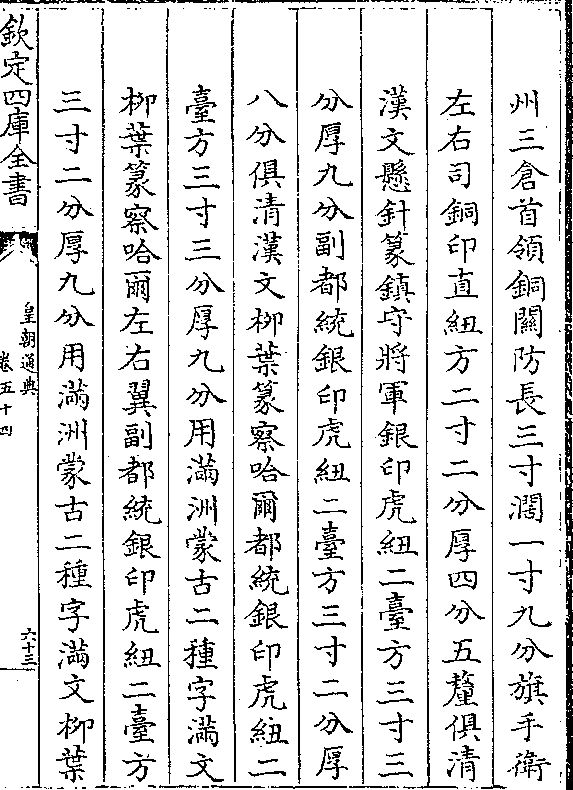 州三倉首領銅關防長三寸濶一寸九分旗手衛
左右司銅印直紐方二寸二分厚四分五釐俱清
漢文懸針篆鎮守將軍銀印虎紐二臺方三寸三
分厚九分副都統銀印虎紐二臺方三寸二分厚
八分俱清漢文柳葉篆察哈爾都統銀印虎紐二
臺方三寸三分厚九分用滿洲蒙古二種字滿文
柳葉篆察哈爾左右翼副都統銀印虎紐二臺方
三寸二分厚九分用滿洲蒙古二種字滿文柳葉
欽定四庫全書
皇朝通典
卷五十四
六十三